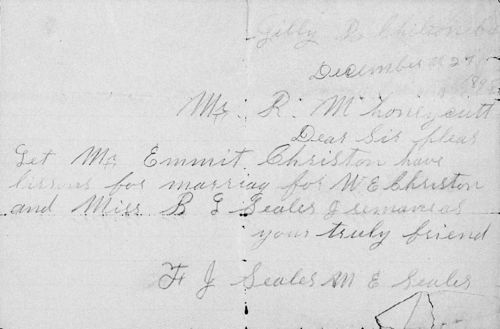 Gilly P Chilton Co
December 27
189
Mr. R. M honeycutt
Dear Sir pleas
Let Mr Emmit Christon have
lissons for marriag for W E Christon
and Miss B L Seales I remane as
your truly friend
F J Seales M E Seales